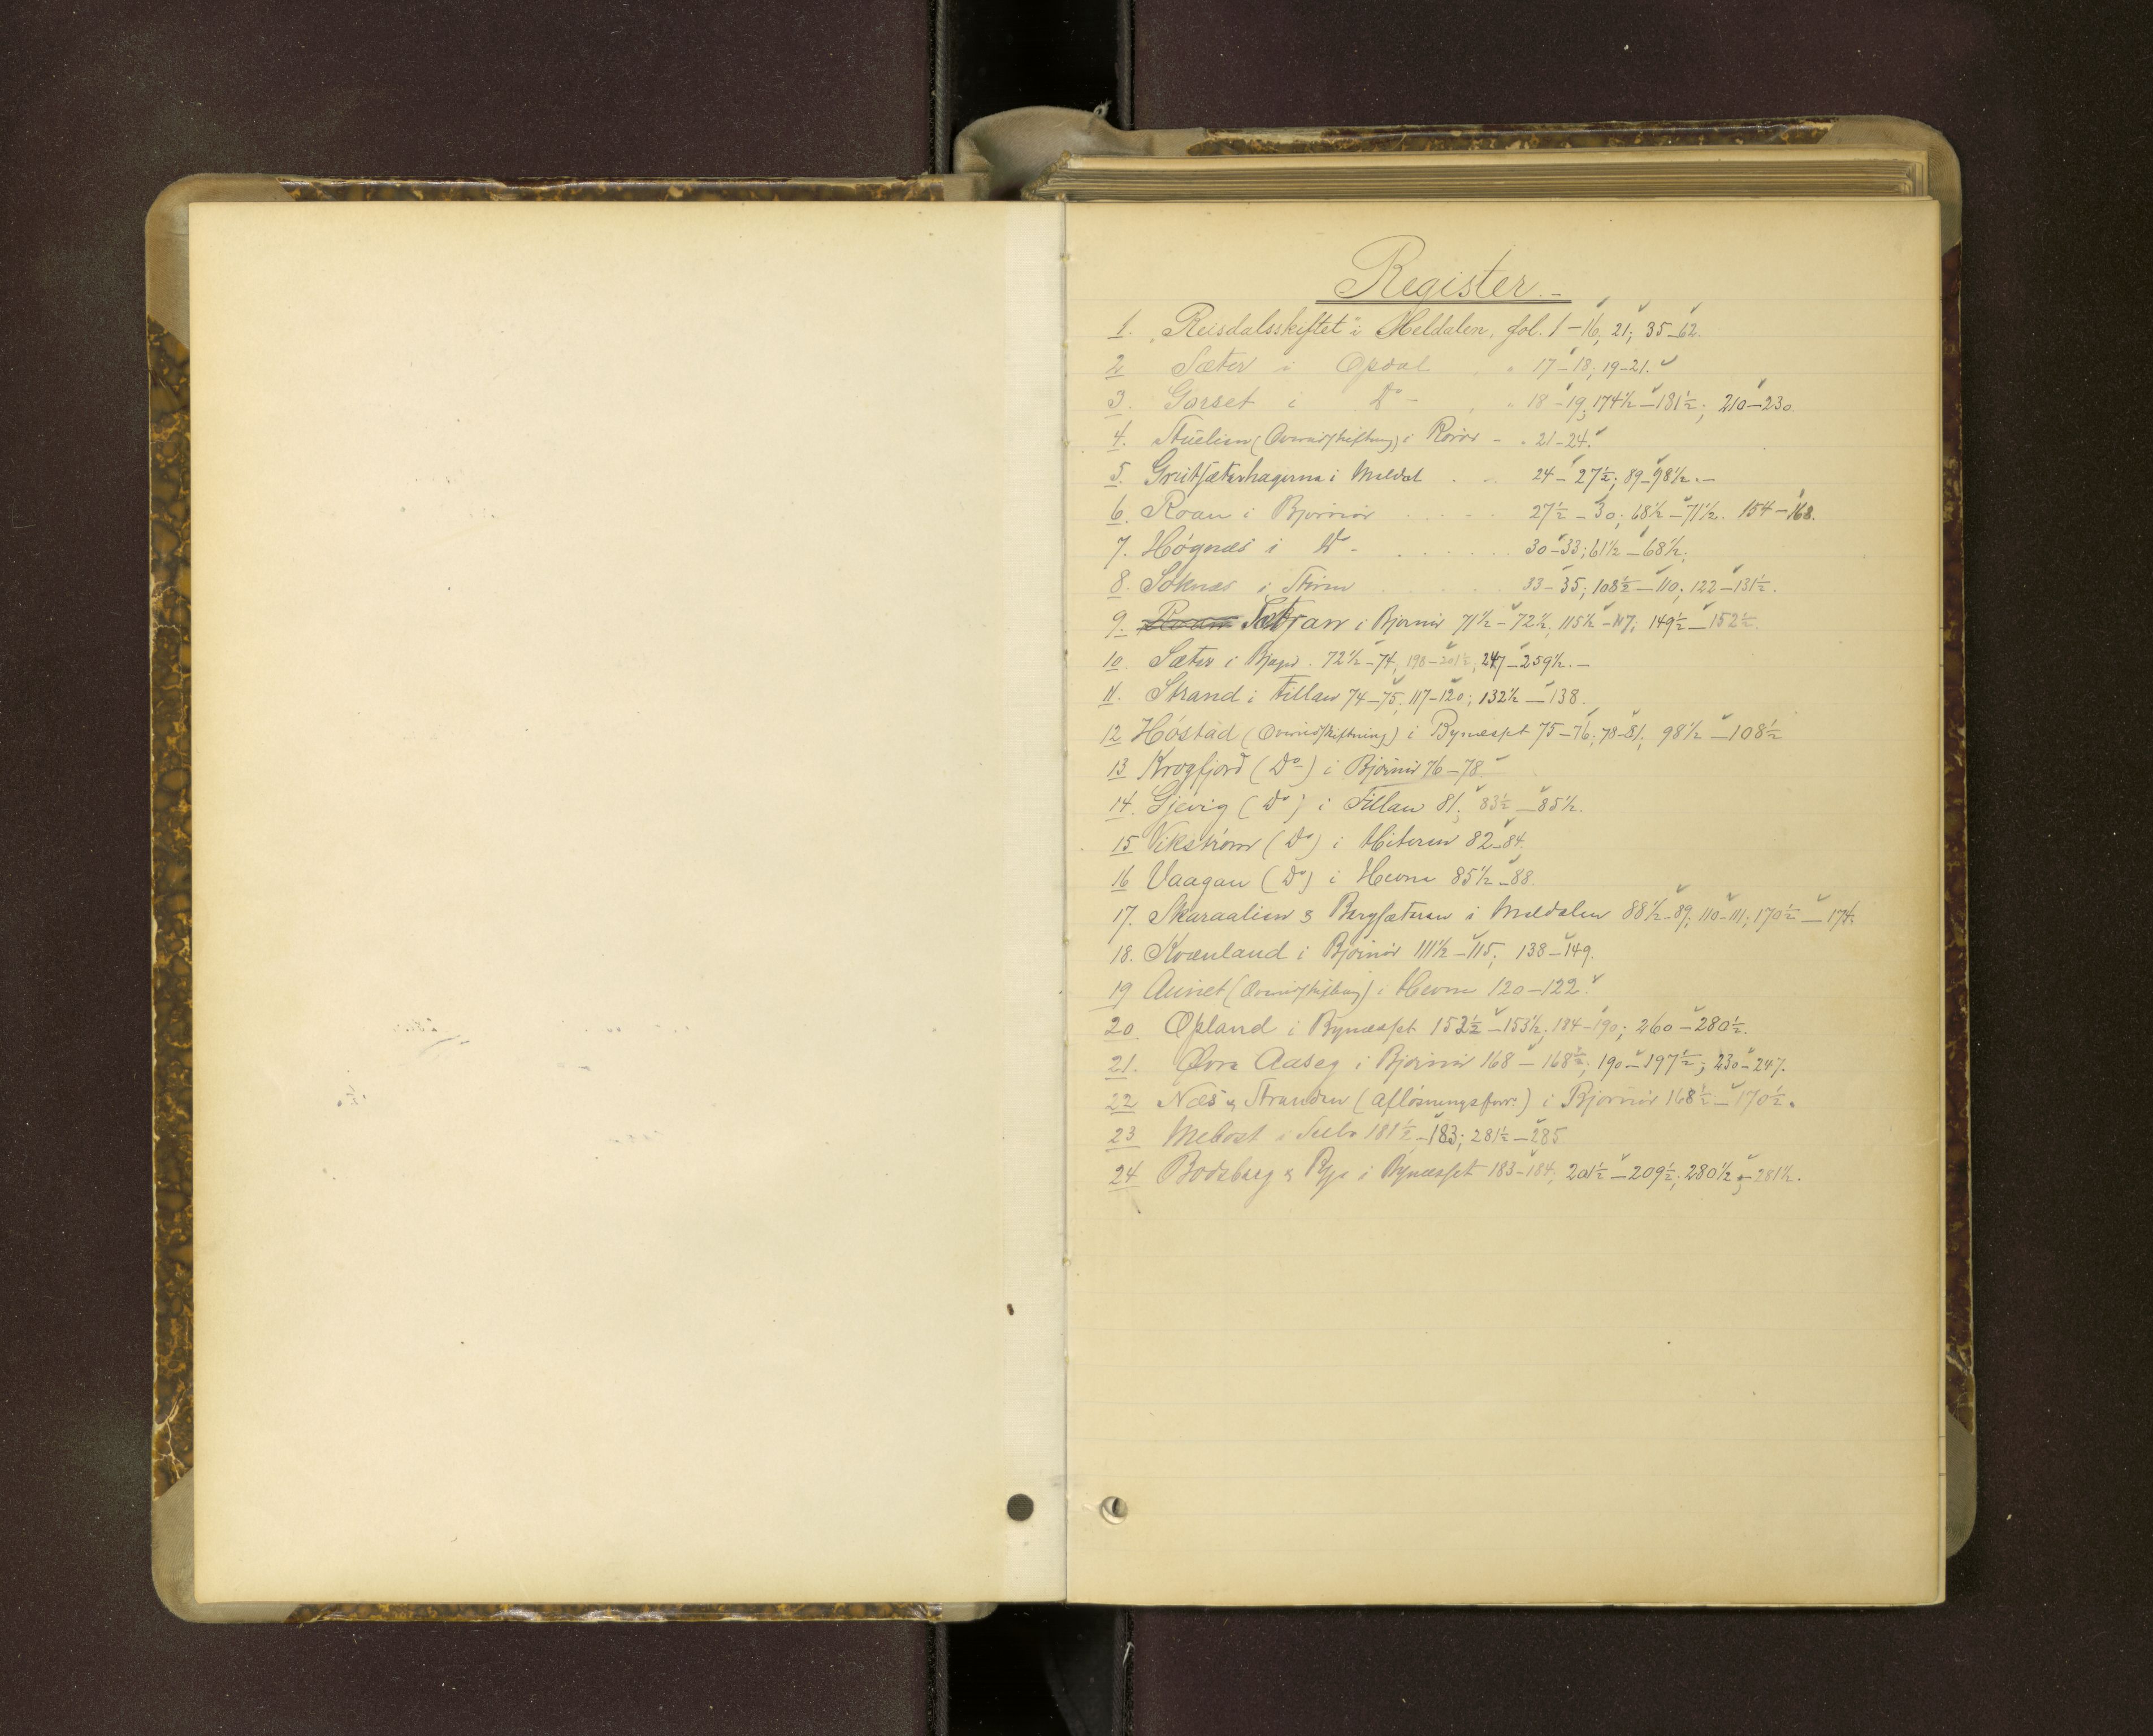 Register.-
1. "Reisdalsskiftet" i Meldalen. fol. 1-16; 21; 35-62.
2 Sæter i Opdal " " 17-18; 19-21.
3. Gorset i Do- " " 18-19; 174½-181½; 210-230.
4. Stuelien (Overudskiftning) i Røros - " 21-24.
5. Grutsæterhagerne i Meldal 24-27½; 89-98½.-
6. Roan i Bjørnør 27½-30; 68½-71½. 154-168.
7. Høgnæs i Do- 30-33; 61½-68½;
8. Soknæs i Støren 33-35; 108½-110; 122-131½.
9. Roan Sætran i Bjørnør 71½-72½; 115½-117; 149½-152½.
10. Sæter i Bjugn. 72½-74; 198-201½; 247-259½.-
11. Strand i Fillan 74-75; 117-120; 132½-138.
12 Høstad (Overudskiftning) i Bynesset 75-76; 78-81; 98½-108½
13 Krogfjord (Do-) i Bjørnør 76-78.
14. Gjevig (Do) i Fillan 81; 83½-85½.
15 Vikstrøm (Do) i Hiteren 82-84.
16 Vaagan (Do) i Hevne 85½-88.
17. Skaraalien & Bergsæteren i Meldalen 88½-89; 110-111; 170½-174.
18. Kvænland i Bjørnør 111½-115; 138-149.
19 Aunet (Overudskiftning) i Hevne 120-122.
20 Opland i Bynæsset 152½-153½; 184-190; 260-280½.
21. Øvre Aaseg i Bjørnør 168-168½; 190-197½; 230-247.
22 Næs & Stranden (afløsningsforr.) i Bjørnør 168½-170½.
23 Mebost i Selbo 181½-183; 281½-285
24 Bodsberg & Rye i Bynæsset 183-184; 201½-209½; 280½-281½.